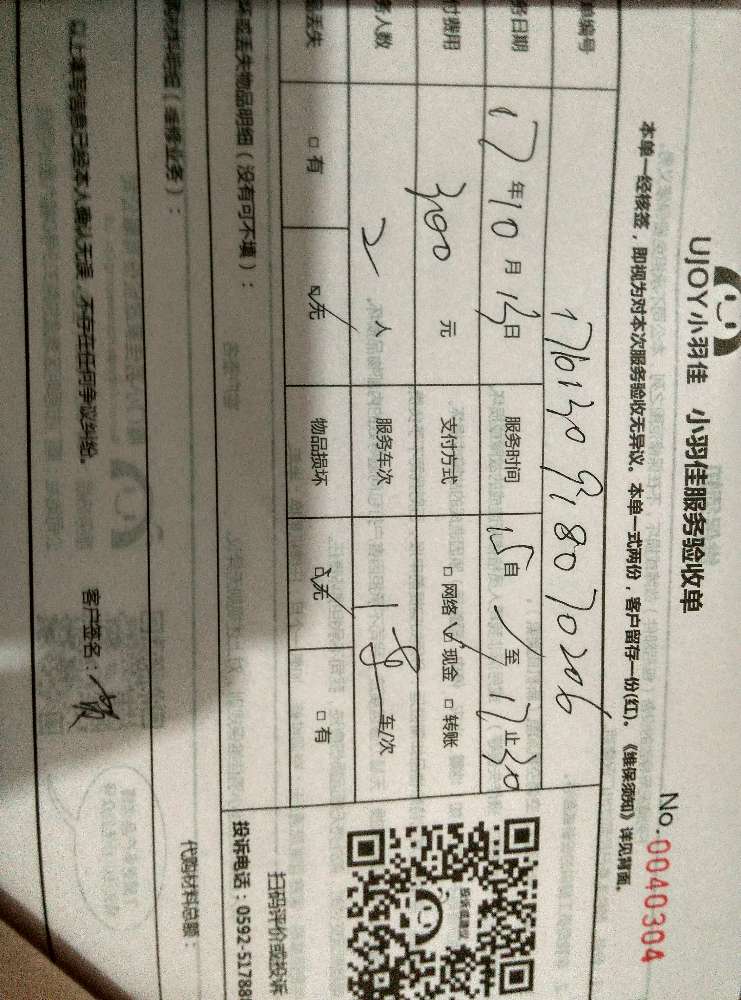 UJOY小羽佳 小羽佳服务验收单
No.0040304
本单一经核签，即视为对本次服务验收无异议。本单一式两份，客户留存一份(红)。《维保须知》详见背面。
单编号
务日期 17年10月13日 服务时间 15自 至17止30
付费用 300元 支付方式 □网络 ☑现金 □转账
务人数 2人 服务车次 1 车/次
丢失 □有 ☑无 物品损坏 ☑无 □有
坏或丢失物品明细（没有可不填）：
扫码评价或投诉
投诉电话：0592-5178
材料明细（维修业务）：
代购材料总额：
以上填写信息已经本人确认无误，不存在任何争议纠纷。 客户签名：